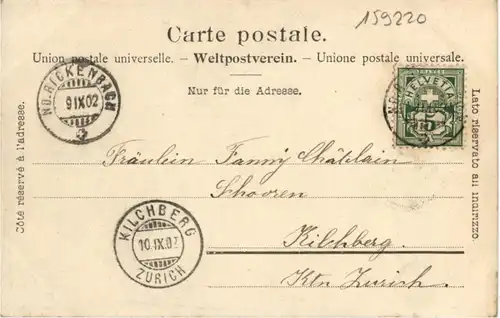 159220
Carte postale.
Union postale universelle. – Weltpostverein. – Unione postale universale.
Nur für die Adresse.
ND. RICKENBACH
9 IX 02
HELVETIA
5
Côté réservé à l'adresse.
Lato riservato all indirizzo.
Fräulein Fanny Châtelain
Schooren
Kilchberg.
Ktn Zurich.
KILCHBERG
10.IX.02
ZURICH